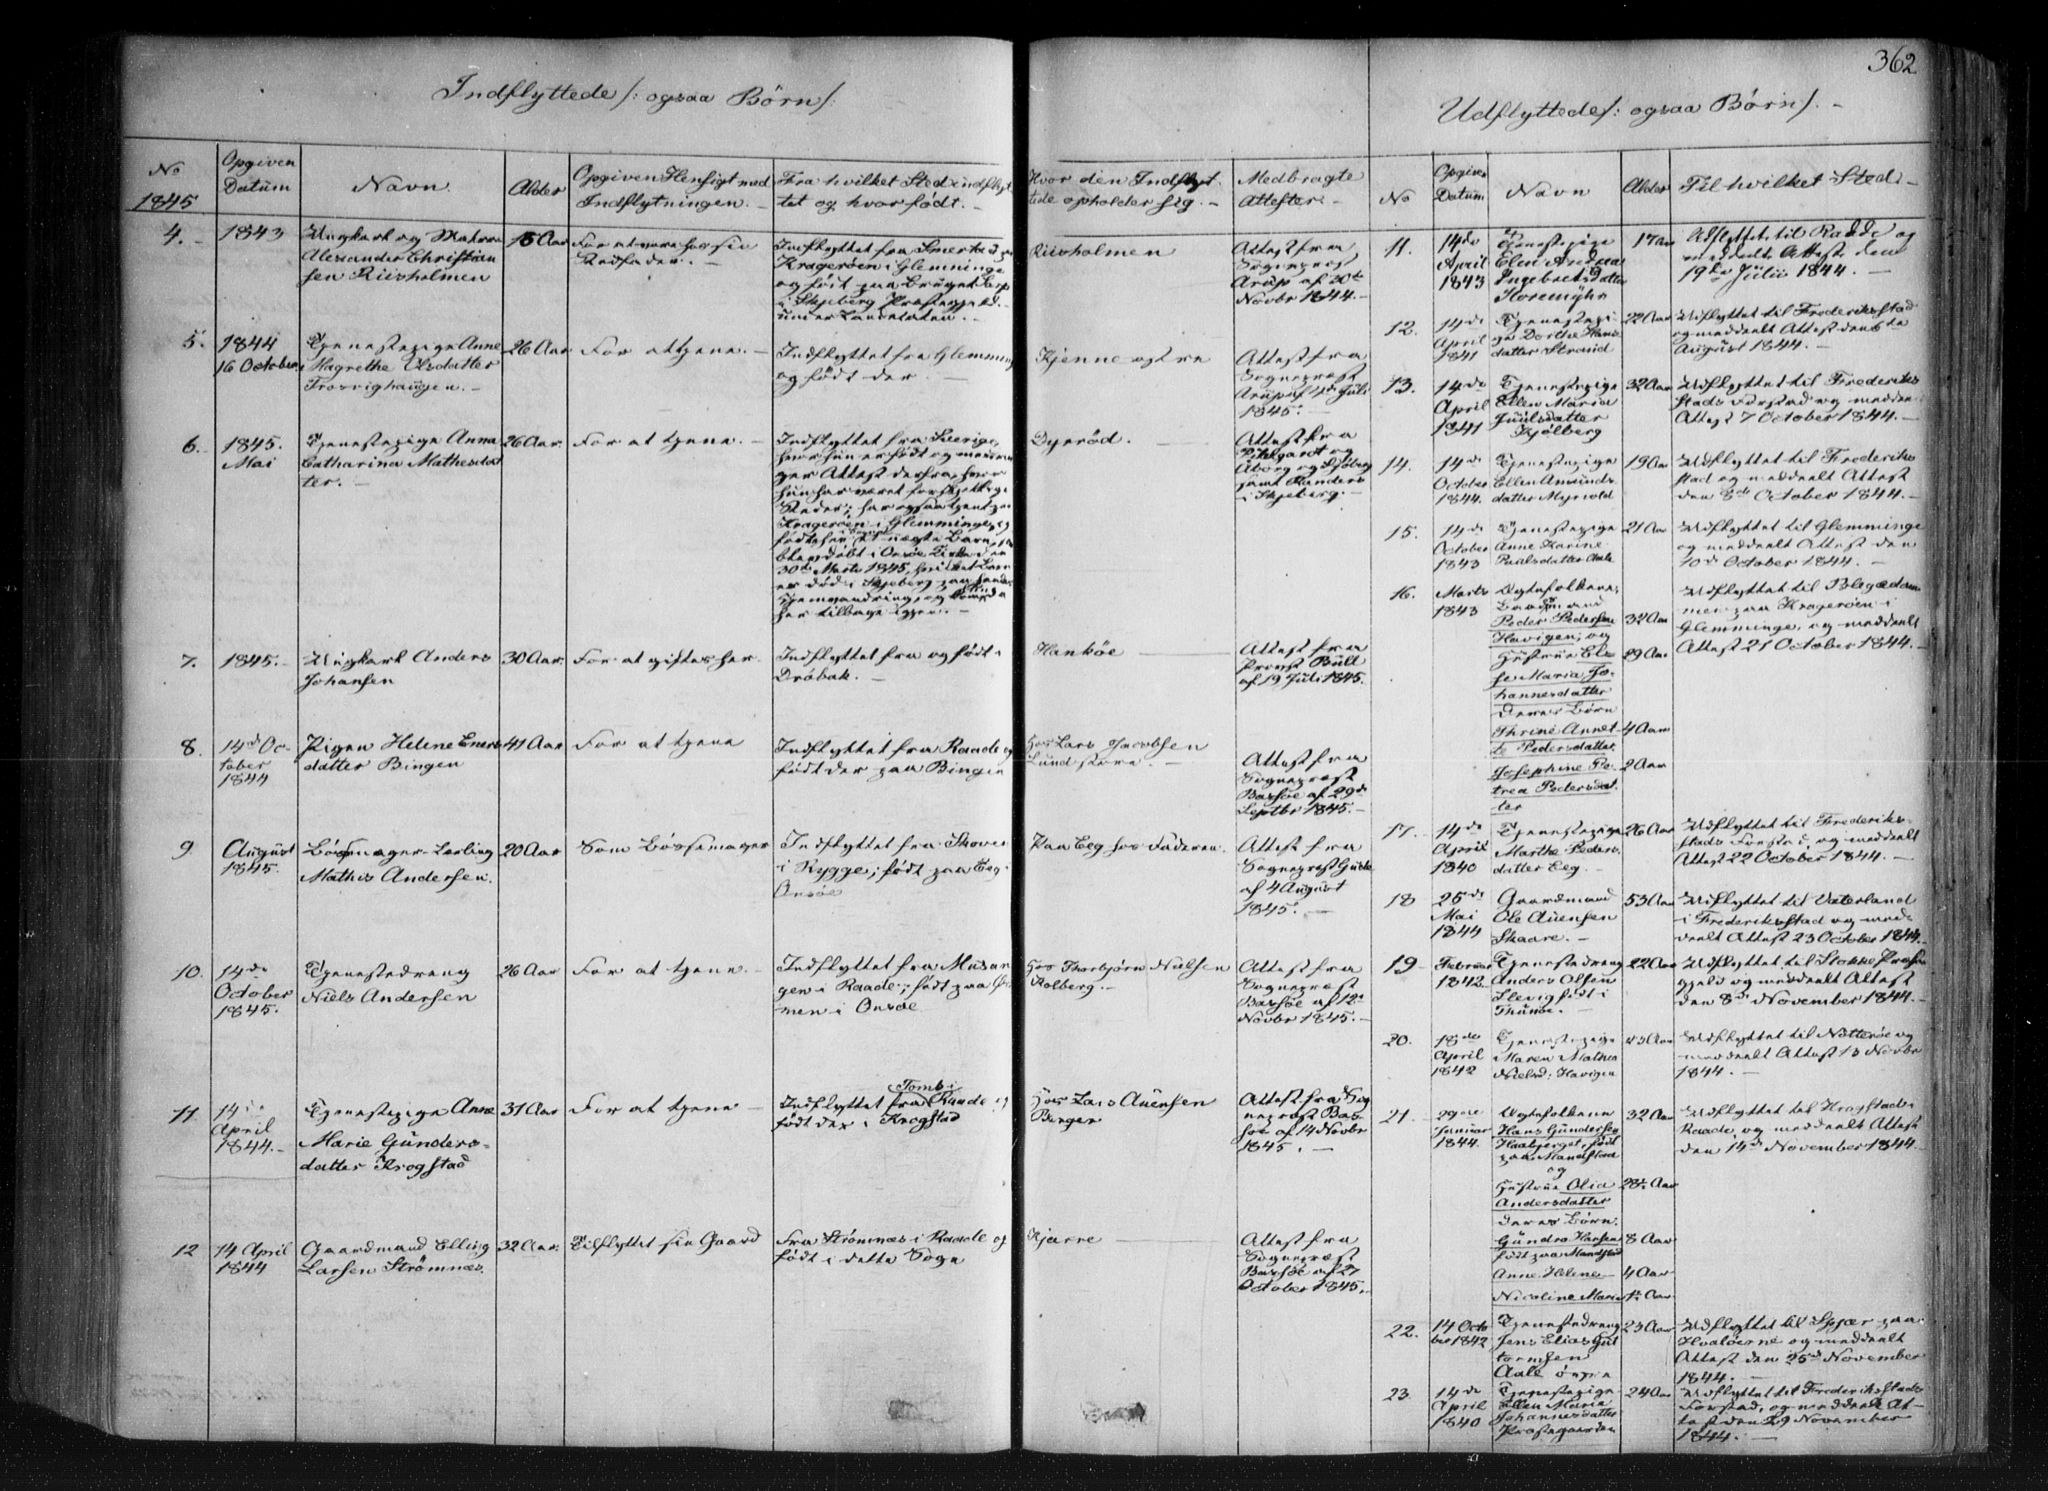 362
Indflyttede /: ogsaa Børn /:
Udflyttede /: ogsaa Børn /. -
No
1845
Opgiven
Datum
Navn
Alder
Opgiven Hensigt med
Indflytningen. -
Fra hvilket Sted indflyt
tet og hvor født. -
Hvor den Indflyt-
tede opholder sig. -
Medbragte
Attester. -
4. -
1843
Ungkarl og Matros
Alexander Christian
sen Riisholmen
15 Aar
For at være hos sin
Indflyttet fra
Kragerøen i Glemminge
og født paa
i Skjeberg Præstegjeld.
Riisholmen
Attest fra
Sognepræst
Arup af 30te
Novbr 1844. -
5.
1844
16 October.
Tjenestepige Anne
Magrethe Olsdatter
26 Aar
For at tjene. -
Indflyttet fra Glemminge
og født der. -
Kjenne østre
Attest fra
Sognepræst
Arup af 4de Juli
1845. -
6.
1845.
Mai
Tjenestepige Anna
Catharina Mathesdat
ter. -
26 Aar.
For at tjene. -
Indflyttet fra Sverige,
hvor hun er født og
ger Attest derfra, hvor
hun har været forskjellige
Steder; har ogsaa tjent paa
Kragerøen i Glemminge, og
blev døbt i Onsøe Kirke den
30de Marts 1845, hvilket Barn
er død i Skjeberg paa hendes
her tilbage igjen. -
Dyrød. -
Attest fra
i Skjeberg. -
7.
1845. -
Ungkarl Anders
Johansen
30 Aar.
For at giftes her.
Indflyttet fra og født i
Drøbak. -
Hankøe
Attest fra
Provst Bull
af 19 Juli 1845.
8.
14de Oc-
tober
1844
Pigen Helene Eners
datter Bingen
41 Aar
For at tjene
Indflyttet fra Raade og
født der paa Bingen
Hos Lars Jacobsen
Lund store. -
Attest fra
Sognepræst
Bassøe af 29de
Septbr 1845. -
9
August
1845.
Bøssemager-Lærling
Mathis Andersen.
20 Aar
Som Bøssemager
Indflyttet fra Skoven
i Rygge; født paa Eeg i
Onsøe
Paa Eeg hos Faderen.
Attest fra
Sognepræst
af 4 August
1845. -
10.
14de
October
1845.
Tjenestedreng
Niels Andersen
26 Aar
For at tjene. -
Indflyttet fra
gen i Raade; født paa
men i Onsøe
Hos Thorbjørn Nielsen
Kolberg. -
Attest fra
Sognepræst
Bassøe af 12te
Novbr 1845. -
11.
14de
April
1844. -
Tjenestepige Anne
Marie Gunders-
datter Krogstad
31 Aar
For at tjene -
Tomb i
Indflyttet fra Raade og
født der i Krogstad
Hos Lars Auensen
Berger
Attest fra Sog
nepræst Bas-
søe af 14 Novbr
1845. -
12
14 April
1844
Gaardmand Elling
Larsen Strømnæs.
32 Aar.
Tilflyttet sin Gaard
fra Strømnæs i Raade og
født i dette Sogn
Kjære
Attest fra
Sognepræst
Bassøe af 27
October 1845. -
No
Opgiven
Datum
Navn
Alder
Til hvilket Sted. -
11.
14de
April
1843
Tjenestepige
Elen Andrea
Ingebretsdatter
Horsmyhr
17 Aar
Udflyttet til Raade og
meddeelt Attest den
19de Julii 1844. -
12.
14de
April
1841
Tjenestepi-
ge Dorthe Hans
datter Strand
22 Aar
Udflyttet til Frederiksstad
og meddeelt Attest den 6te
August 1844. -
13.
14de
April
1841
Tjenestepige
Ellen Maria
Juulsdatter
Kjølberg
32 Aar
Udflyttet til Frederiks
stads Forstad og meddeelt
Attest 7 October 1844. -
14.
14de
October
1844.
Tjenestepige
Ellen Amunds
datter Myrvold
19 Aar
Udflyttet til Frederiks
stad og meddeelt Attest
den 8de October 1844. -
15.
14de
October
1843
Tjenestepige
Anne Karine
Paulsdatter Aale
21 Aar
Udflyttet til Glemminge
og meddeelt Attest den
10de October 1844. -
16.
Marts
1843
Ægtefolkene,
Peder Pedersen
Havigen, og
32 Aar
Hustrue El-
se Maria Jo-
hannesdatter
29 Aar
Deres Børn
Thrine Annet
te Pedersdatter
4 Aar
Josephine Pe-
trea Pedersdat
ter
2 Aar
Udflyttet til Blegedam
men paa Kragerøen i
Glemminge, og meddeelt
Attest 21 October 1844. -
17.
14de
April
1840
Tjenestepige
Marthe Peders
datter Eeg. -
26 Aar
Udflyttet til Frederiks-
stads Forstad, og meddeelt
Attest 22 October 1844. -
18
25de
Mai
1844
Gaardmand
Ole Auensen
Skaare. -
53 Aar
Udflyttet til Vaterland
i Frederiksstad og med-
deelt Attest 23 October 1844. -
19
Februar
1842.
Tjenestedreng
Anders Olsen
Slevig født i
Thunøe. -
22 Aar
Udflyttet til Stokke Præste
gjeld og meddeelt Attest
den 8de November 1844. -
20.
18de
April
1842
Tjenestepige
Maren Mathea
Nielsd: Havigen
23 Aar
Udflyttet til Nøtterøe og
meddeelt Attest 13 Novbr
1844. -
21.
29de
Januar
1844.
Ægtefolkene
Hans Gundersen
Haabjerget, født
paa Mandstad
og
32 Aar
Hustrue Olia
Andersdatter
28 Aar
deres Børn.
Gundra Hansen
født paa Mandstad
8 Aar
Anne Helene
4 Aar
Nicoline Marie
1/2 Aar
Udflyttet til Krogstad i
Raade, og meddeelt Attest
den 14de November 1844. -
22.
14 Octo
ber 1842
Tjenestedreng
Jens Elias Gut
tormsen
Aale øvre
23 Aar
Udflyttet til Spjær paa
Hvaløerne og meddeelt
Attest den 25de November
1844. -
23.
14de
April
1840
Tjenestepige
Ellen Maria
Johannesdatter
Præstegaarden
24 Aar
Udflyttet til Frederiksstads
Forstad, og meddeelt At-
test den 29 November
1844. -